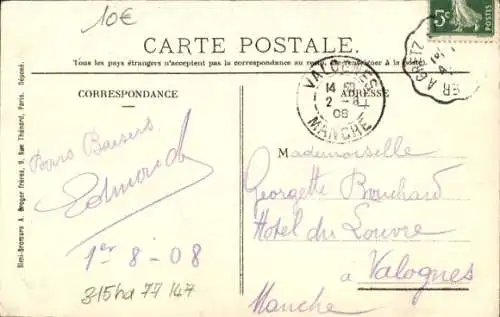 10€
5c
POSTES
CARTE POSTALE.
Tous les pays étrangers n'acceptent pas la correspondance au
VALOGNES
14
2 - 8
08
MANCHE
CORRESPONDANCE
ADRESSE
Simi-Bromure A. Breger frères, 9, Rue Thénard, Paris. Déposé.
Bons Baisers
Edmond
1er 8 - 08
315hd 77 147
Mademoiselle
Georgette Bouchard
Hotel du Louvre
à Valognes
Manche